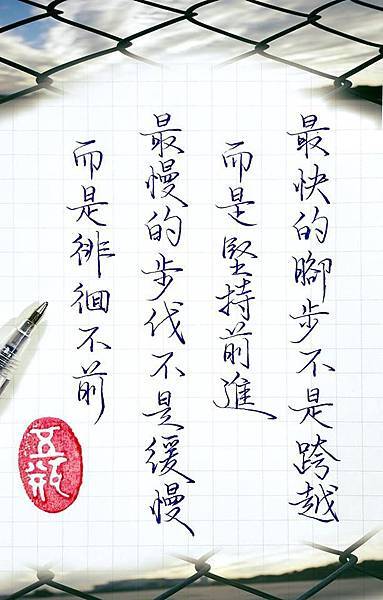 最快的腳步不是跨越
而是堅持前進
最慢的步伐不是緩慢
而是徘徊不前